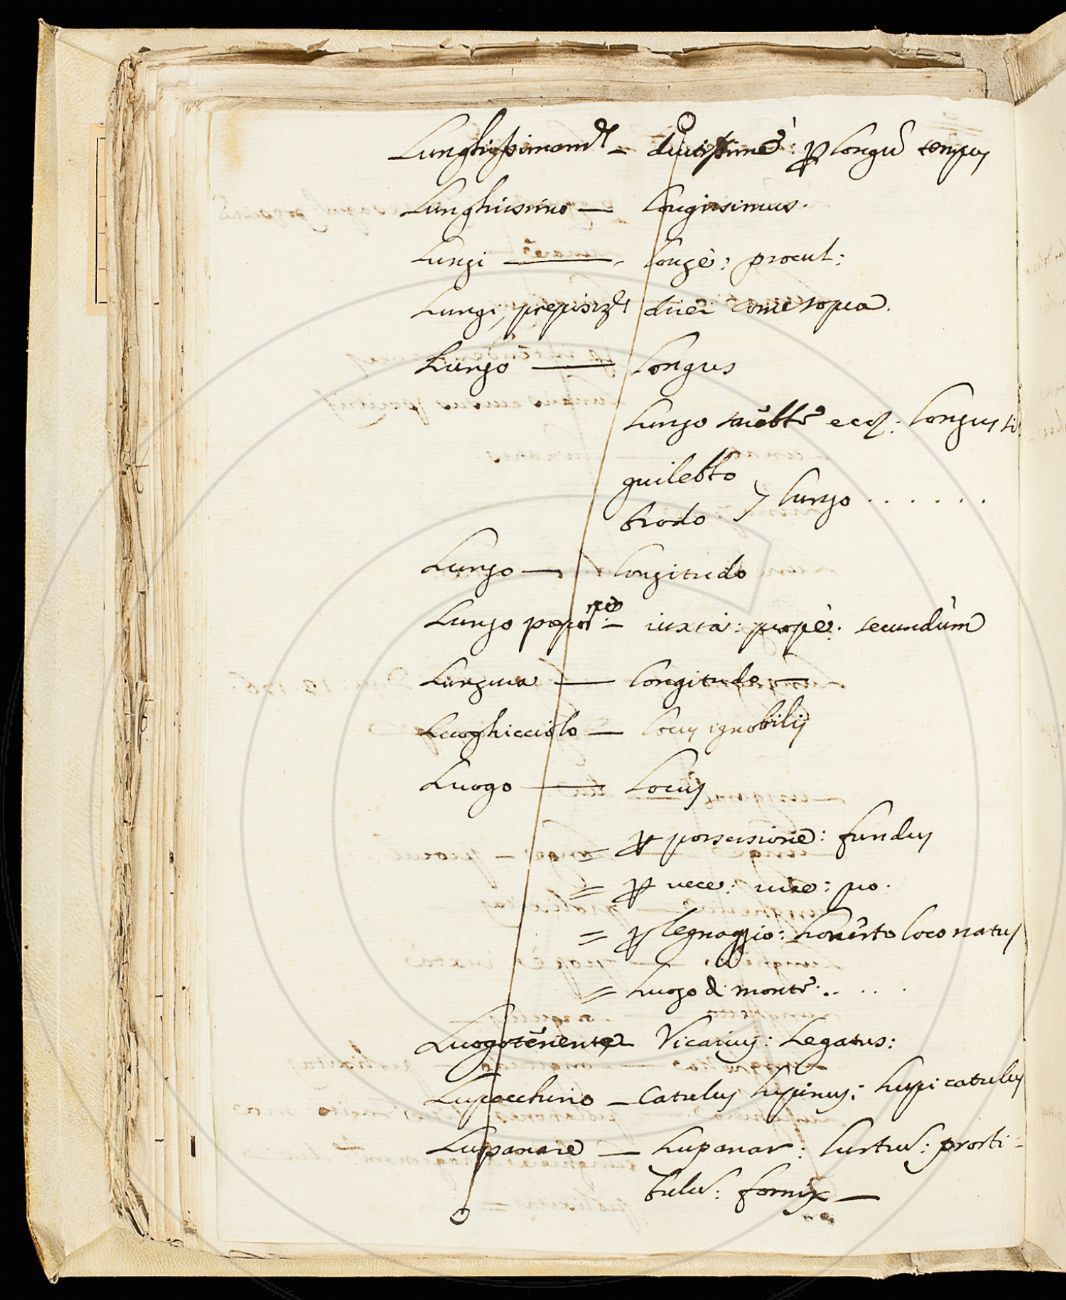 Lunghissimam.te – diutissimè: p longū tempus
Lunghissimo — longissimus.
Lungi — longè: procul:
Lungi, preposiz.e dicei come sopra.
Lungo — longus
Lungo
guilebbo
brodo } lungo . . . . . .
Lungo — longitudo
Lungo – iuxtà: propè. secundùm
longitudo —
Luoghicciolo — locus ignobilis
Luogo — Locus
= p possessione: fundus
= p vece: vice: pro.
= p legnaggio: honesto loco natus
= Luogo di monte. . . . .
Luogotenente Vicarius: Legatus:
Lupacchino – Catulus lupinus: Lupi catulus
Lupanare — Lupanar: lustrū: prosti-
bulū: fornix —